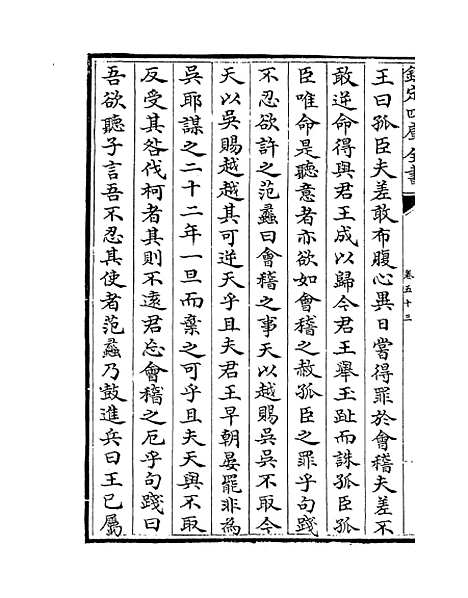 欽定四庫全書
卷五十三
王曰孤臣夫差敢布腹心異日嘗得罪於會稽夫差不
敢逆命得與君王成以歸今君王舉玉趾而誅孤臣孤
臣唯命是聽意者亦欲如會稽之赦孤臣之罪乎句踐
不忍欲許之范蠡曰會稽之事天以越賜吳吳不取今
天以吳賜越越其可逆天乎且夫君王早朝晏罷非為
吳耶謀之二十二年一旦而棄之可乎且夫天與不取
反受其咎伐柯者其則不遠君忘會稽之厄乎句踐曰
吾欲聽子言吾不忍其使者范蠡乃鼓進兵曰王已屬